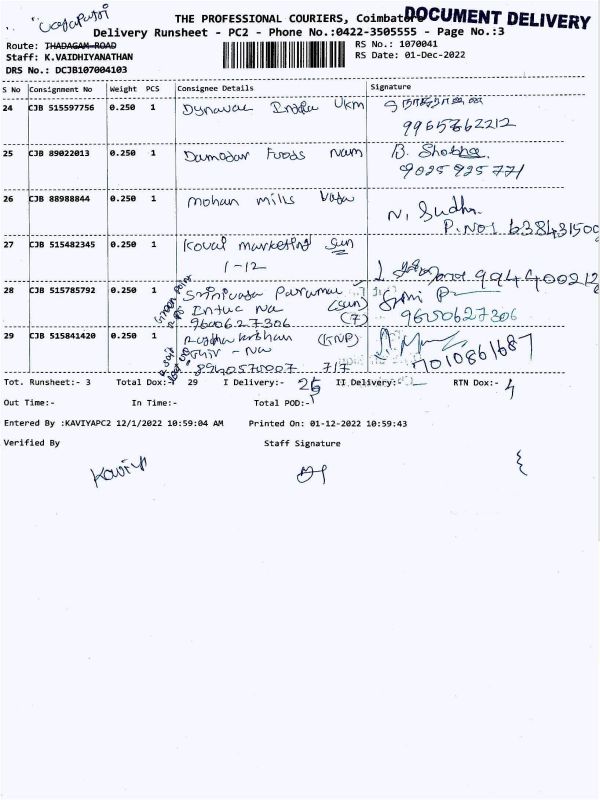 THE PROFESSIONAL COURIERS, Coimbatore
DOCUMENT DELIVERY
Delivery Runsheet - PC2 - Phone No.:0422-3505555 - Page No.:3
Route: THADAGAM ROAD
RS No.: 1070041
Staff: K.VAIDHIYANATHAN
RS Date: 01-Dec-2022
DRS No.: DCJB107004103
S No Consignment No Weight PCS Consignee Details Signature
24 CJB 515597756 0.250 1 India Ukm
9965762212
25 CJB 89022013 0.250 1 Damodar Foods Nam B. Shobha
9025925771
26 CJB 88988844 0.250 1 mohan mills N. Sudha
P.No1 638431500
27 CJB 515482345 0.250 1 Kovai marketing Sun
1-12
994400212
28 CJB 515785792 0.250 1 Srinivasa Perumal
Intuc Na (Sun)
9600627306 (7) 9600627306
29 CJB 515841420 0.250 1 (GNP)
- Na 7010861687
8940570007 717
Tot. Runsheet:- 3 Total Dox:- 29 I Delivery:- 25 II Delivery:- RTN Dox:- 4
Out Time:- In Time:- Total POD:-
Entered By :KAVIYAPC2 12/1/2022 10:59:04 AM Printed On: 01-12-2022 10:59:43
Verified By Staff Signature
Kaviya